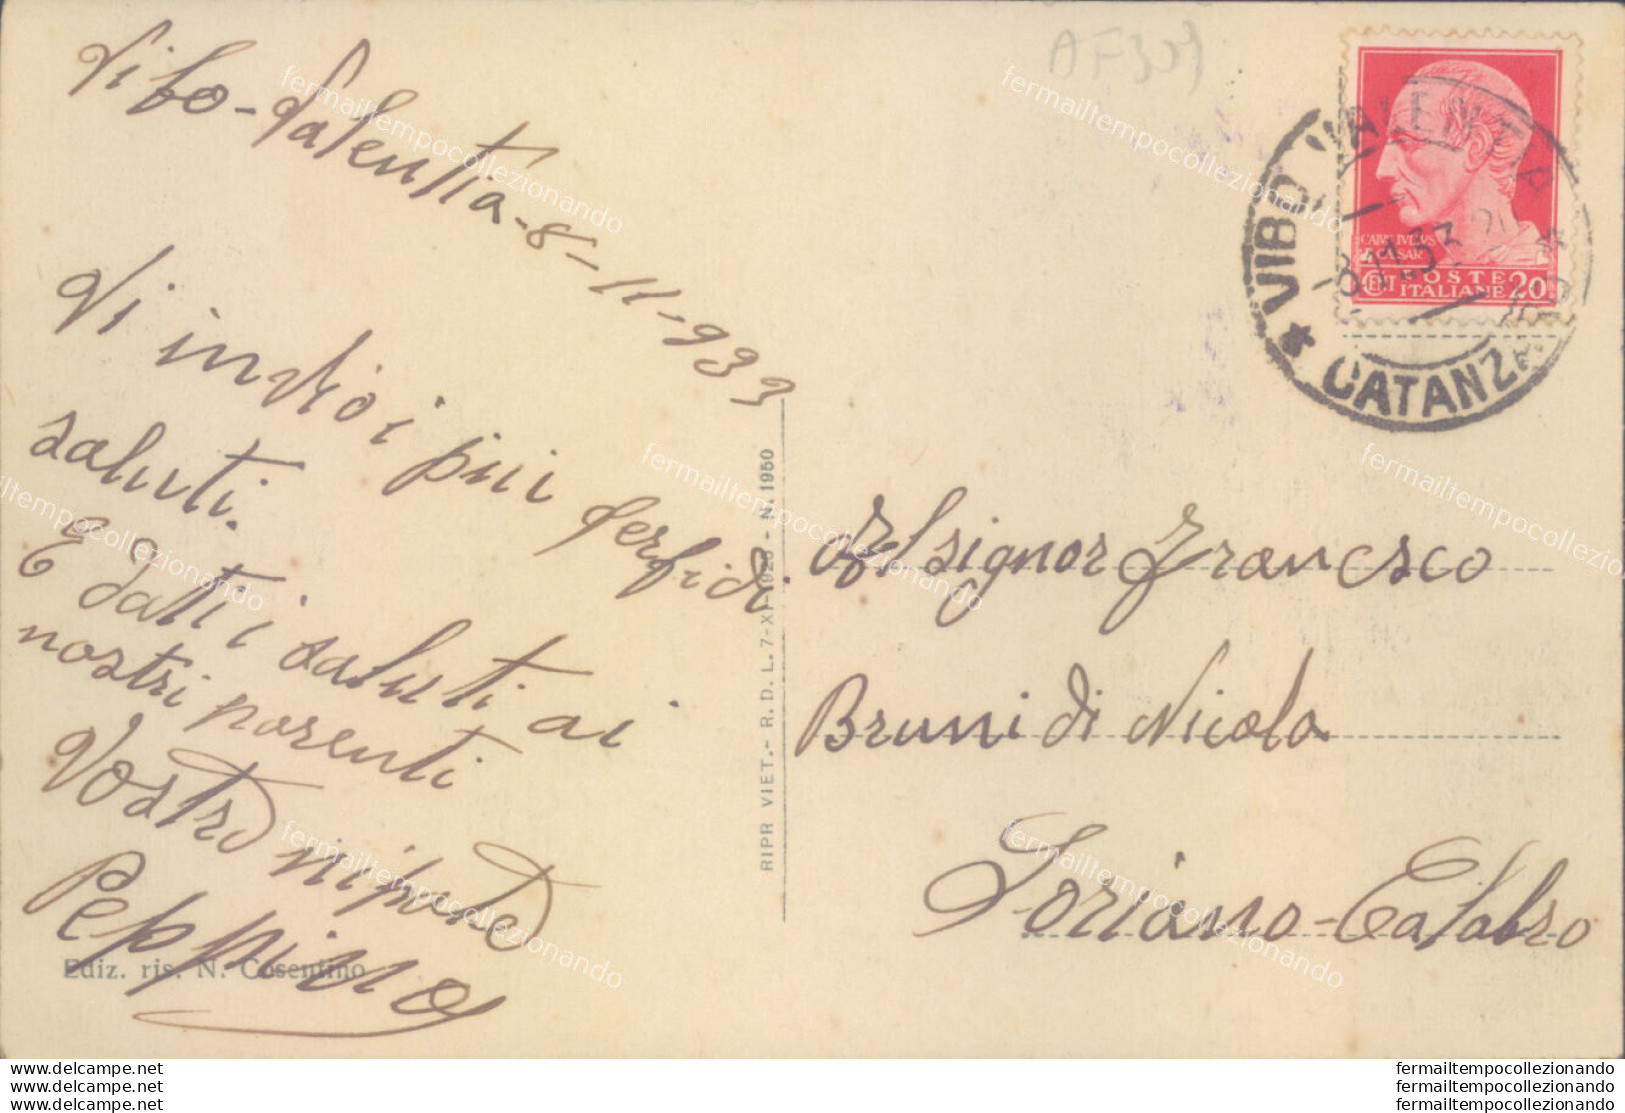 AF309
Vibo-Valentia-8-11-933
Vi invio i più fervidi
saluti.
E tatti i saluti ai
nostri parenti
Vostro nipote
Peppino
Ediz. ris. N. Cosentino
RIPR VIET.- R. D. L. 7-XI-1925 - N. 1950
VIBO VALENTIA
* CATANZARO *
8.11.33
CAIVS IVLIVS
CAESAR
CENT POSTE 20
ITALIANE
Al signor Francesco
Bruni di Nicola
Soriano-Calabro
fermailtempocollezionando
fermailtempocollezionando
fermailtempocollezionando
fermailtempocollezionando
fermailtempocollezionando
fermailtempocollezionando
www.delcampe.net
www.delcampe.net
www.delcampe.net